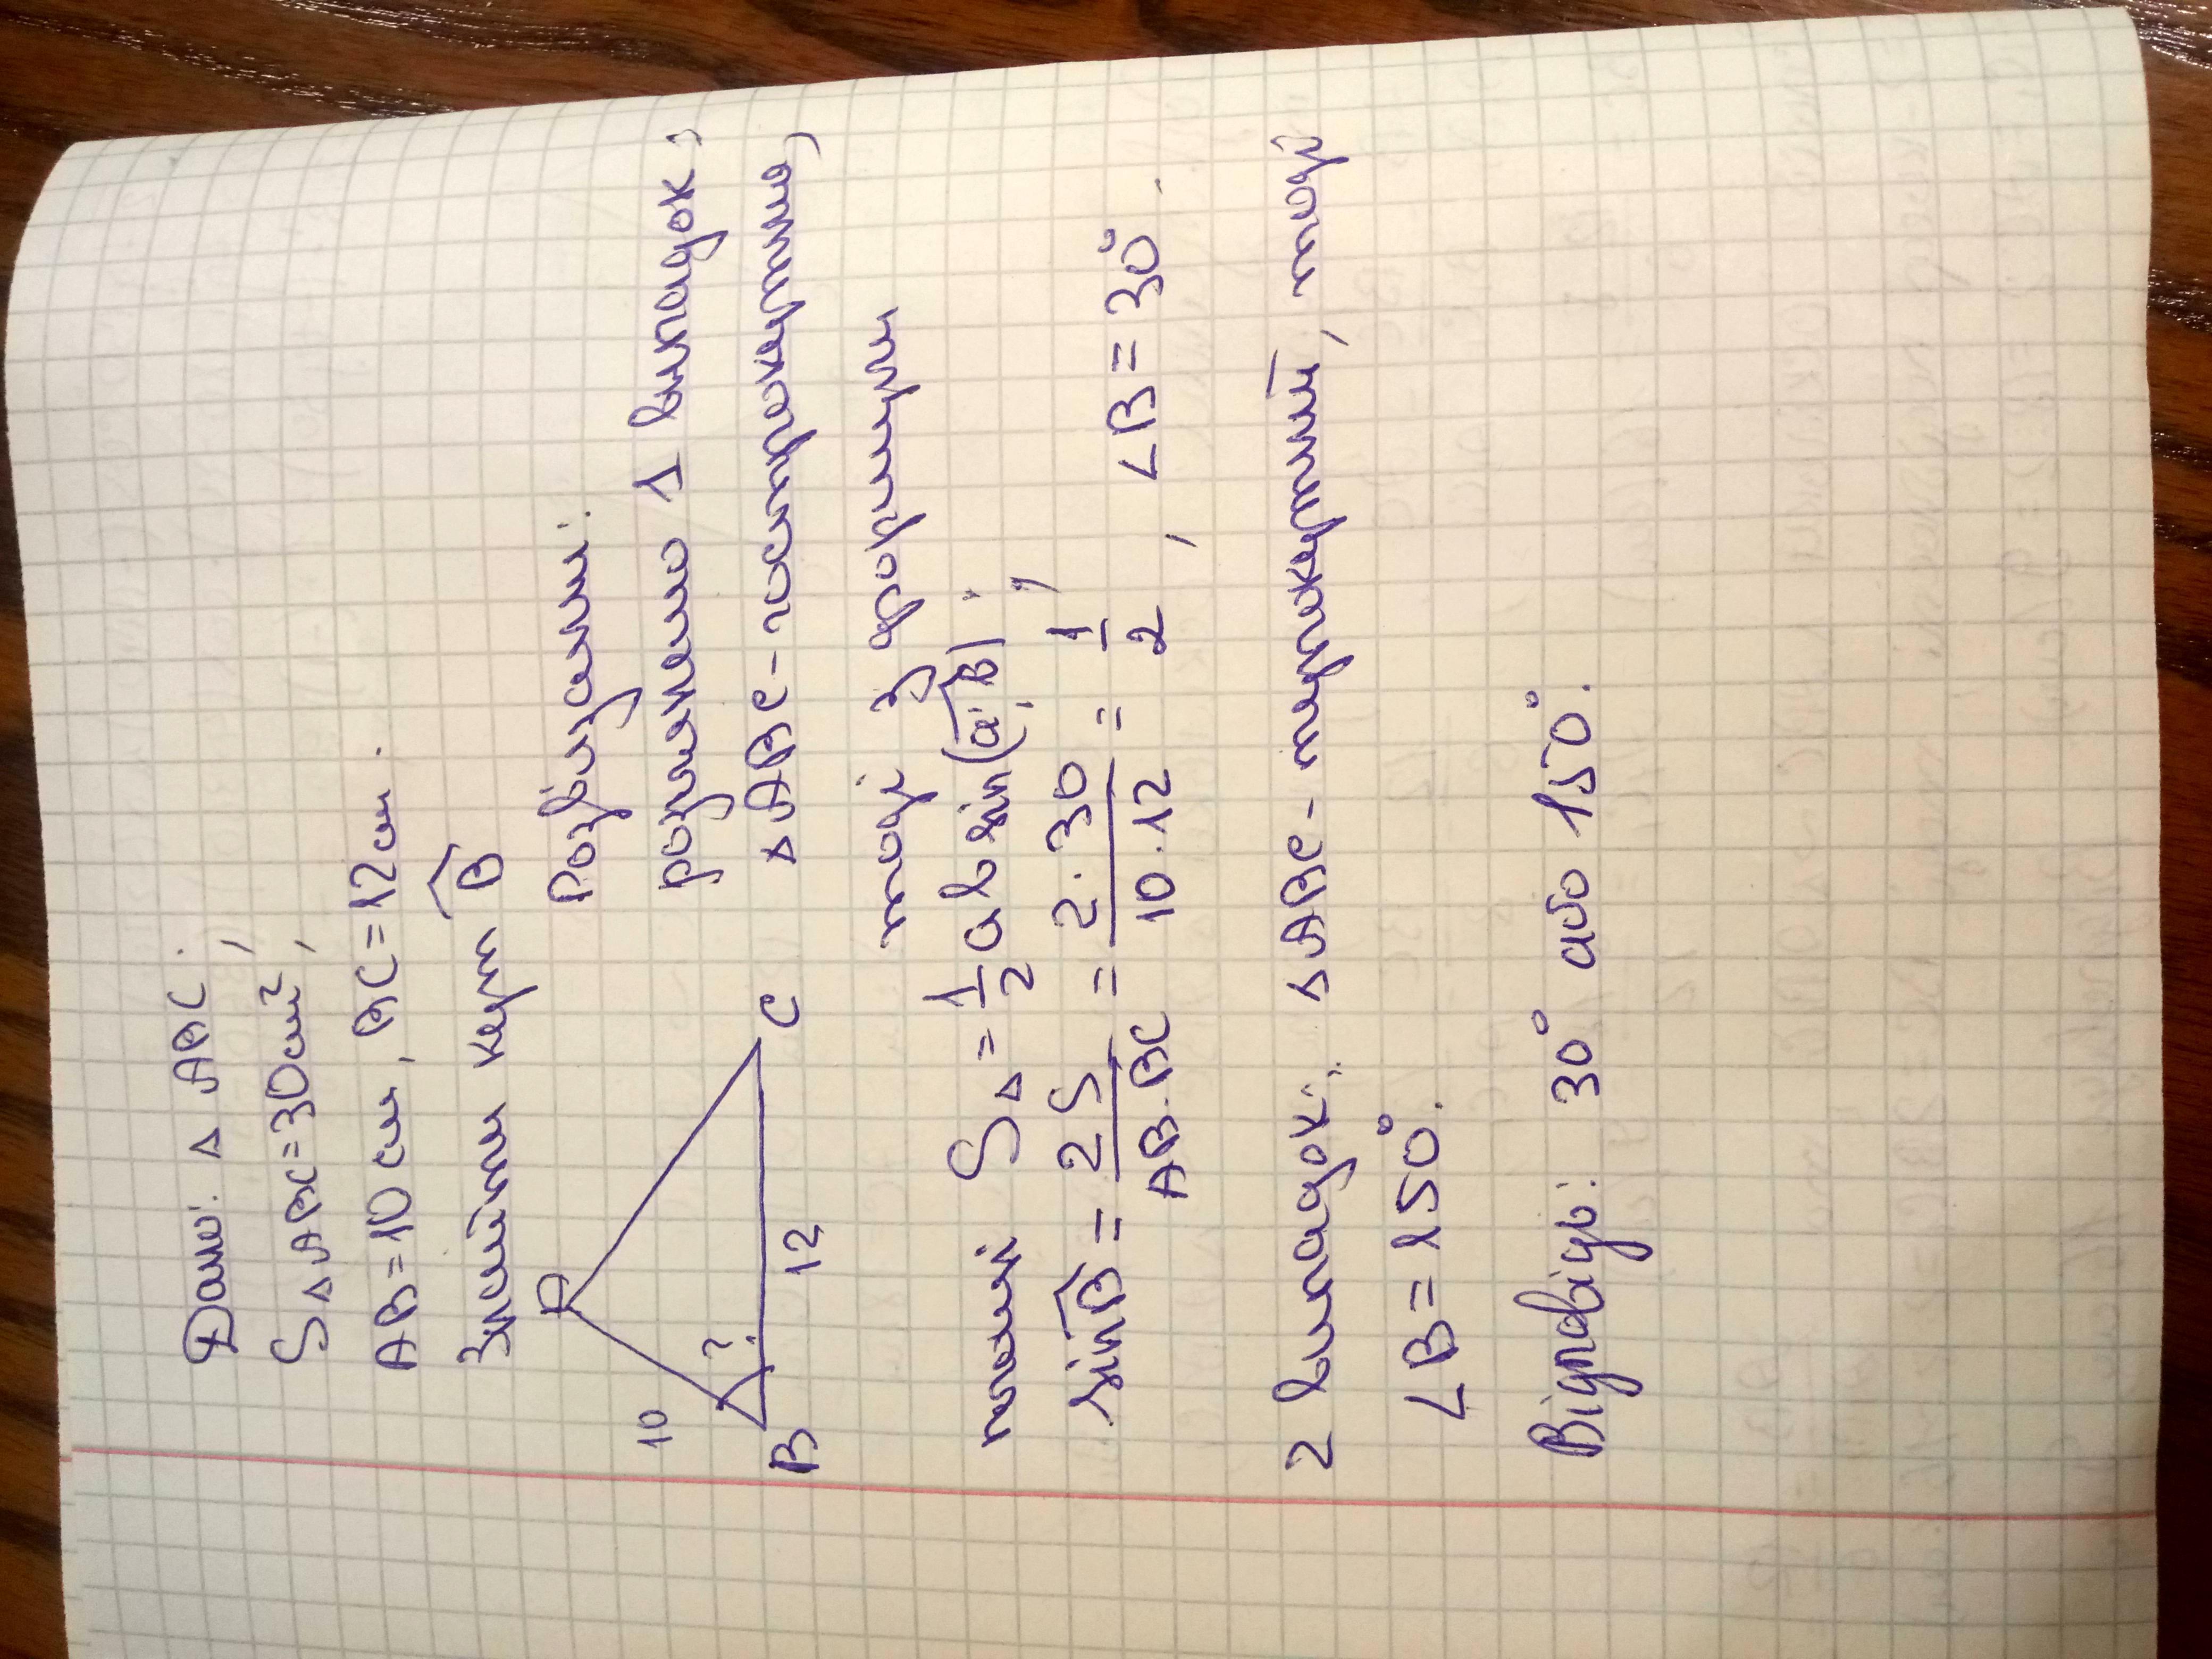 Дано: △ ABC;
S△ABC=30см²,
AB=10 см, BC=12см.
Знайти кут B
Розвʼязання:
розглянемо 1 випадок;
△ABC-гострокутний,
тоді з формули
площі S△=1/2 ab sin(a;b);
sinB = 2S/AB·BC = 2·30/10·12 = 1/2, ∠B=30°.
2 випадок: △ABC-тупокутний, тоді
∠B=150°.
Відповідь: 30° або 150°.
A
10
?
B
12
C